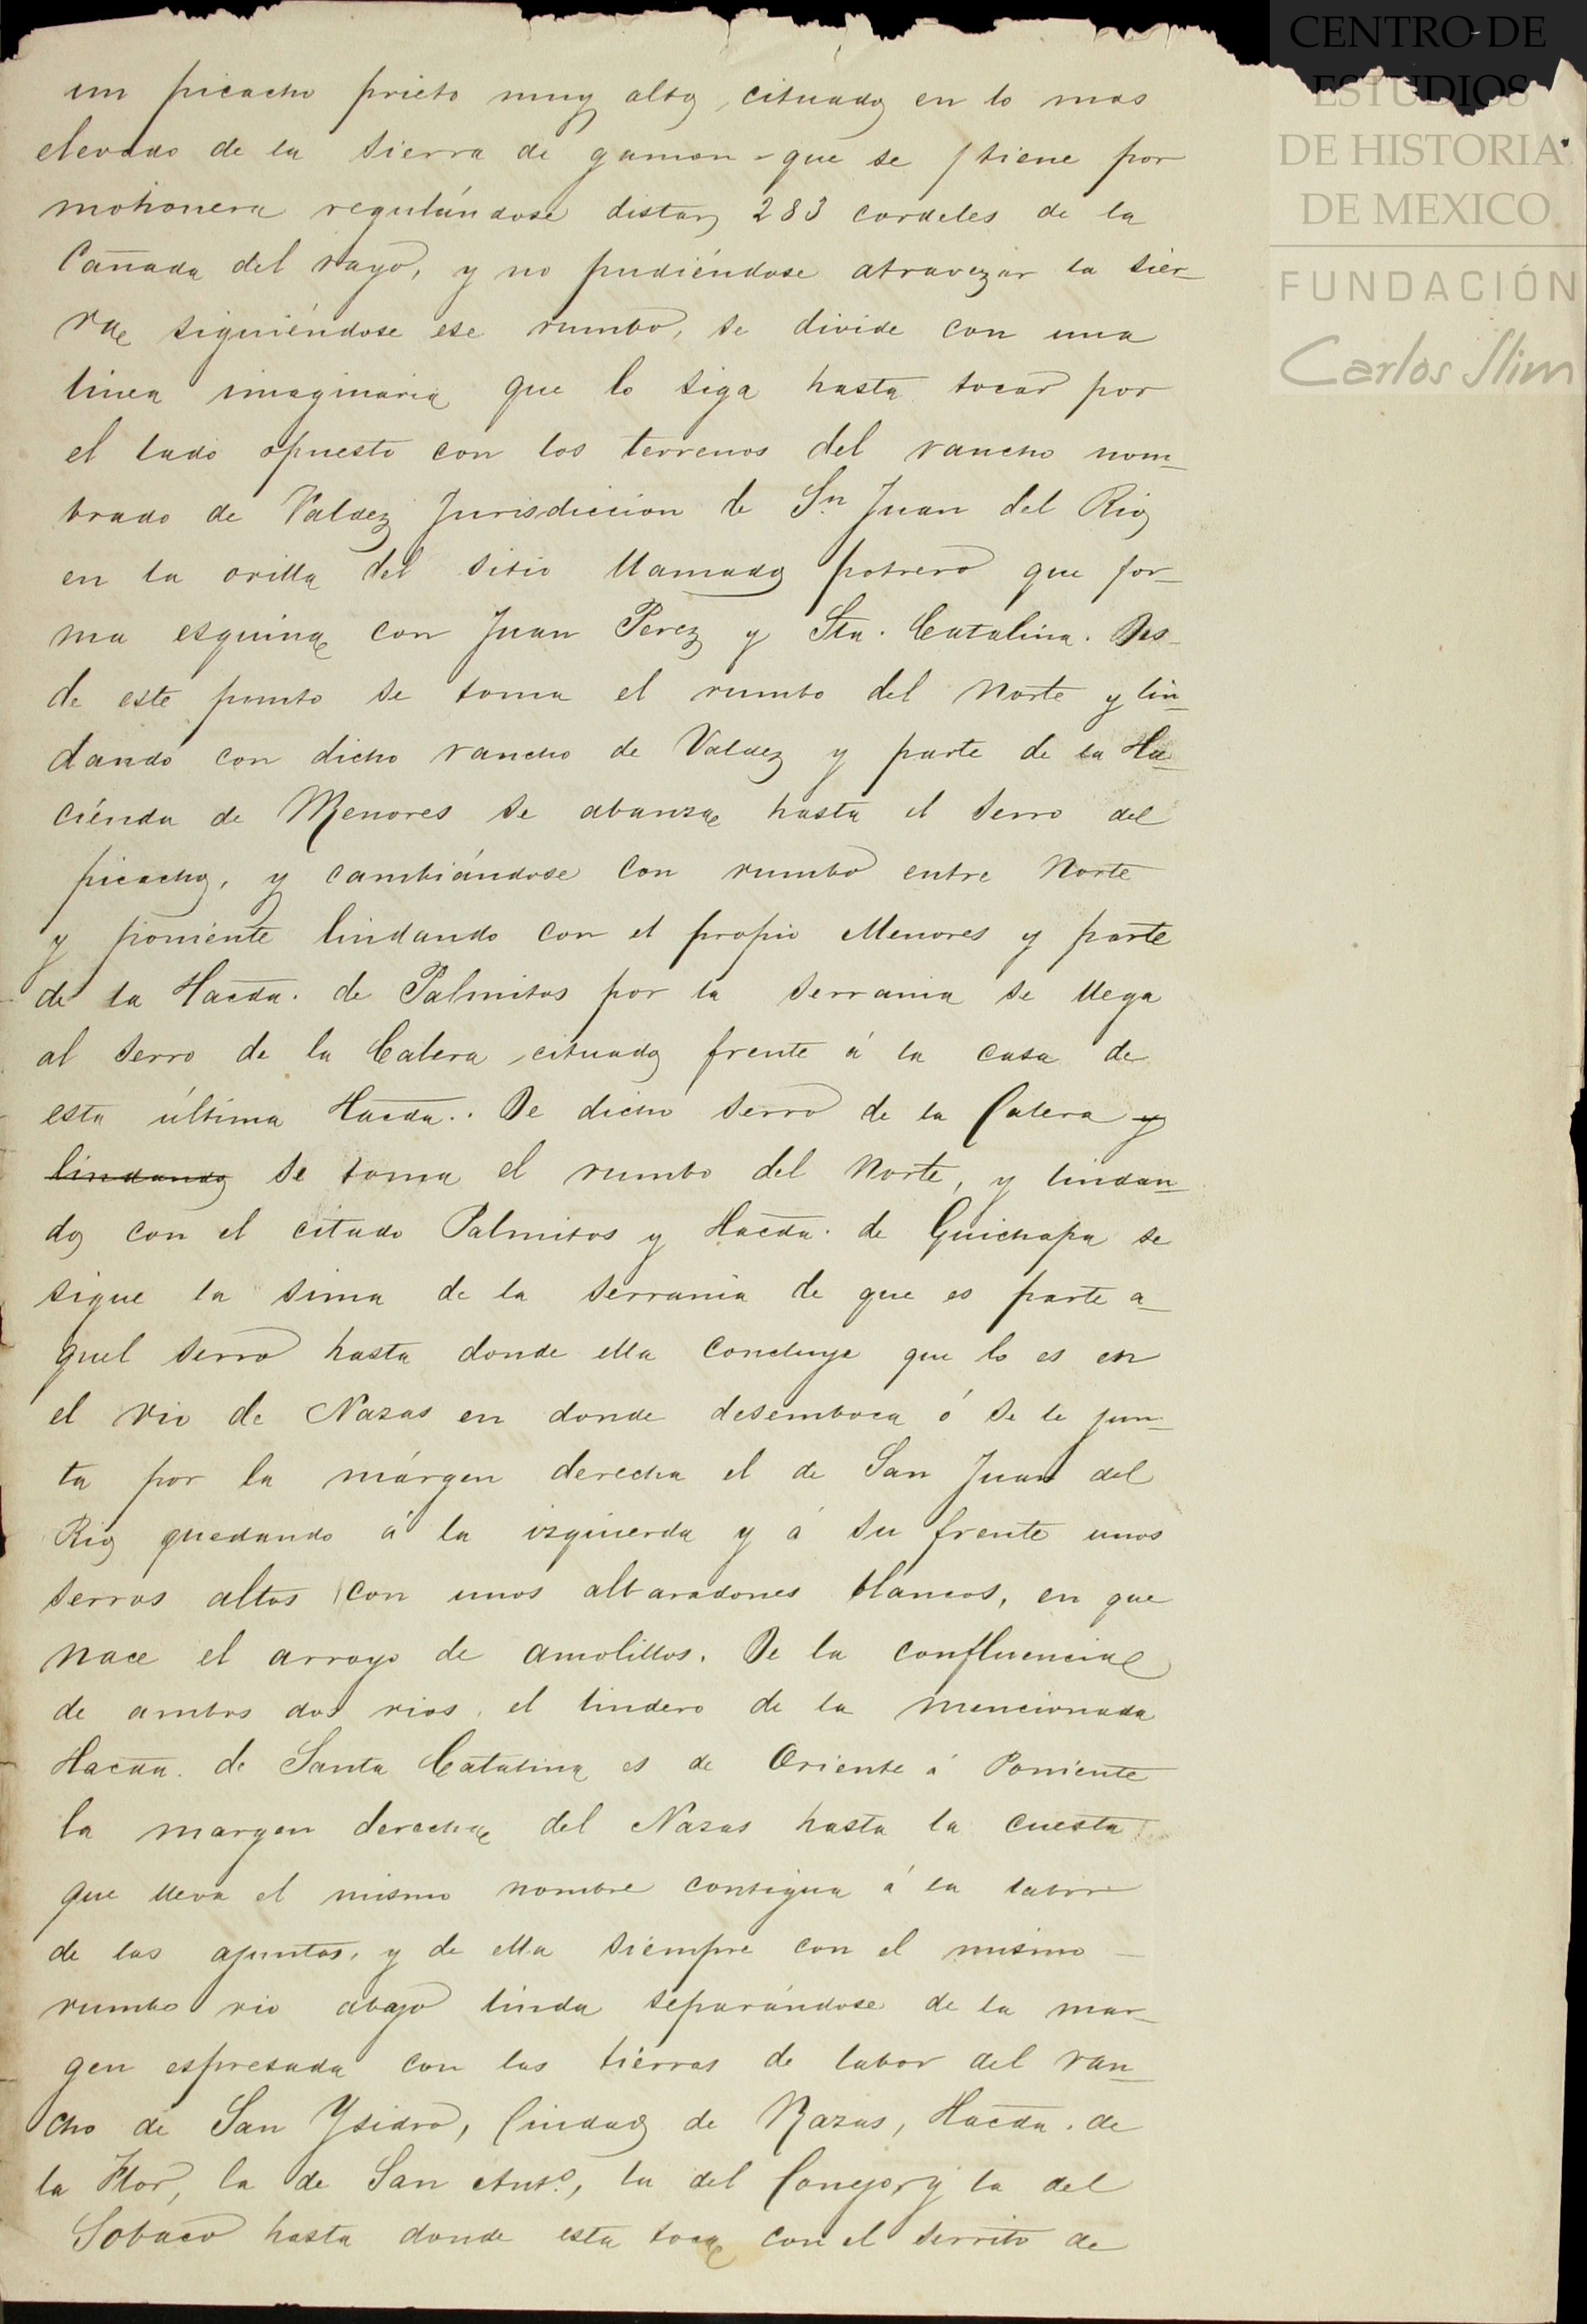 un picacho prieto muy alto, cituado en lo mas
elevado de la sierra de gamon - que se tiene por
mohonera regulándose distar 283 cordeles de la
Cañada del rayo, y no pudiéndose atravezar la sier-
ra siguiéndose ese rumbo, se divide con una
linea imaginaria que lo siga hasta tocar por
el lado opuesto con los terrenos del rancho nom-
brado de Valdez Jurisdiccion de Sn. Juan del Rio
en la orilla del sitio llamado potrero que for-
ma esquina con Juan Perez y Sta. Catalina. Des-
de este punto se toma el rumbo del Norte y lin-
dando con dicho rancho de Valdez y parte de la Ha-
ciénda de Menores se abanza hasta el serro del
picacho, y cambiándose con rumbo entre Norte
y poniente lindando con el propio Menores y parte
de la Hacda. de Palmitos por la serrania se llega
al serro de la Calera cituado frente á la casa de
esta última Hacda.. De dicho serro de la Calera y
lindando se toma el rumbo del Norte, y lindan-
do con el citado Palmitos y Hacda. de Guichapa se
sigue la sima de la serrania de que es parte a-
quel serro hasta donde ella concluye que lo es en
el rio de Nazas en donde desemboca ó se le jun-
ta por la márgen derecha el de San Juan del
Rio quedando á la izquierda y á su frente unos
serros altos con unos albaradones blancos, en que
nace el arroyo de amolillos. De la confluencia
de ambos dos rios, el lindero de la mencionada
Hacda. de Santa Catalina es de Oriente á Poniente
la margen derecha del Nazas hasta la cuesta
que lleva el mismo nombre contigua á la labor
de las apuntas, y de ella siempre con el mismo
rumbo rio abajo linda separándose de la mar-
gen espresada con las tierras de labor del ran-
cho de San Ysidro, Ciudad de Nazas, Hacda. de
la Flor, la de San Anto., la del Conejo, y la del
Sobaco hasta donde esta toca con el serrito de
CENTRO DE
ESTUDIOS
DE HISTORIA
DE MEXICO
FUNDACIÓN
Carlos Slim